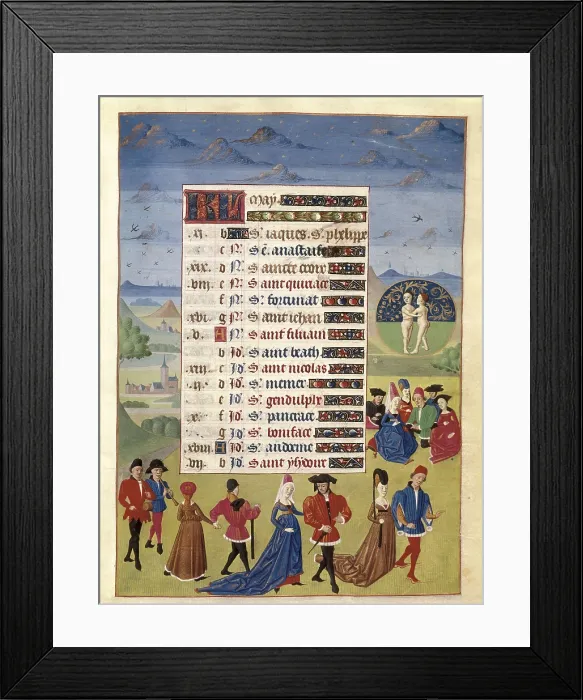 KL May
.xi. b S. iaques. S. phelippe
c N. Se. anastaise
.xix. d N. Saincte croix
.viij. e N. Saint quiriace
f N. S. fortunat
.xvi. g N. Saint iehan
.v. A N. Saint siluain
b Id Saint beath
.xiij. c Id Saint nicolas
.ij. d Id S. memer
e Id S. gendulphe
.x. f Id S. pancrace
g Id S. boniface
.xviij. A Id S. andoene
.vij. b Id Saint ysidoire